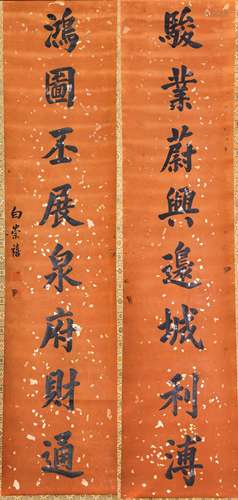 駿業蔚興邊城利溥
鴻圖丕展泉府財通
白崇禧